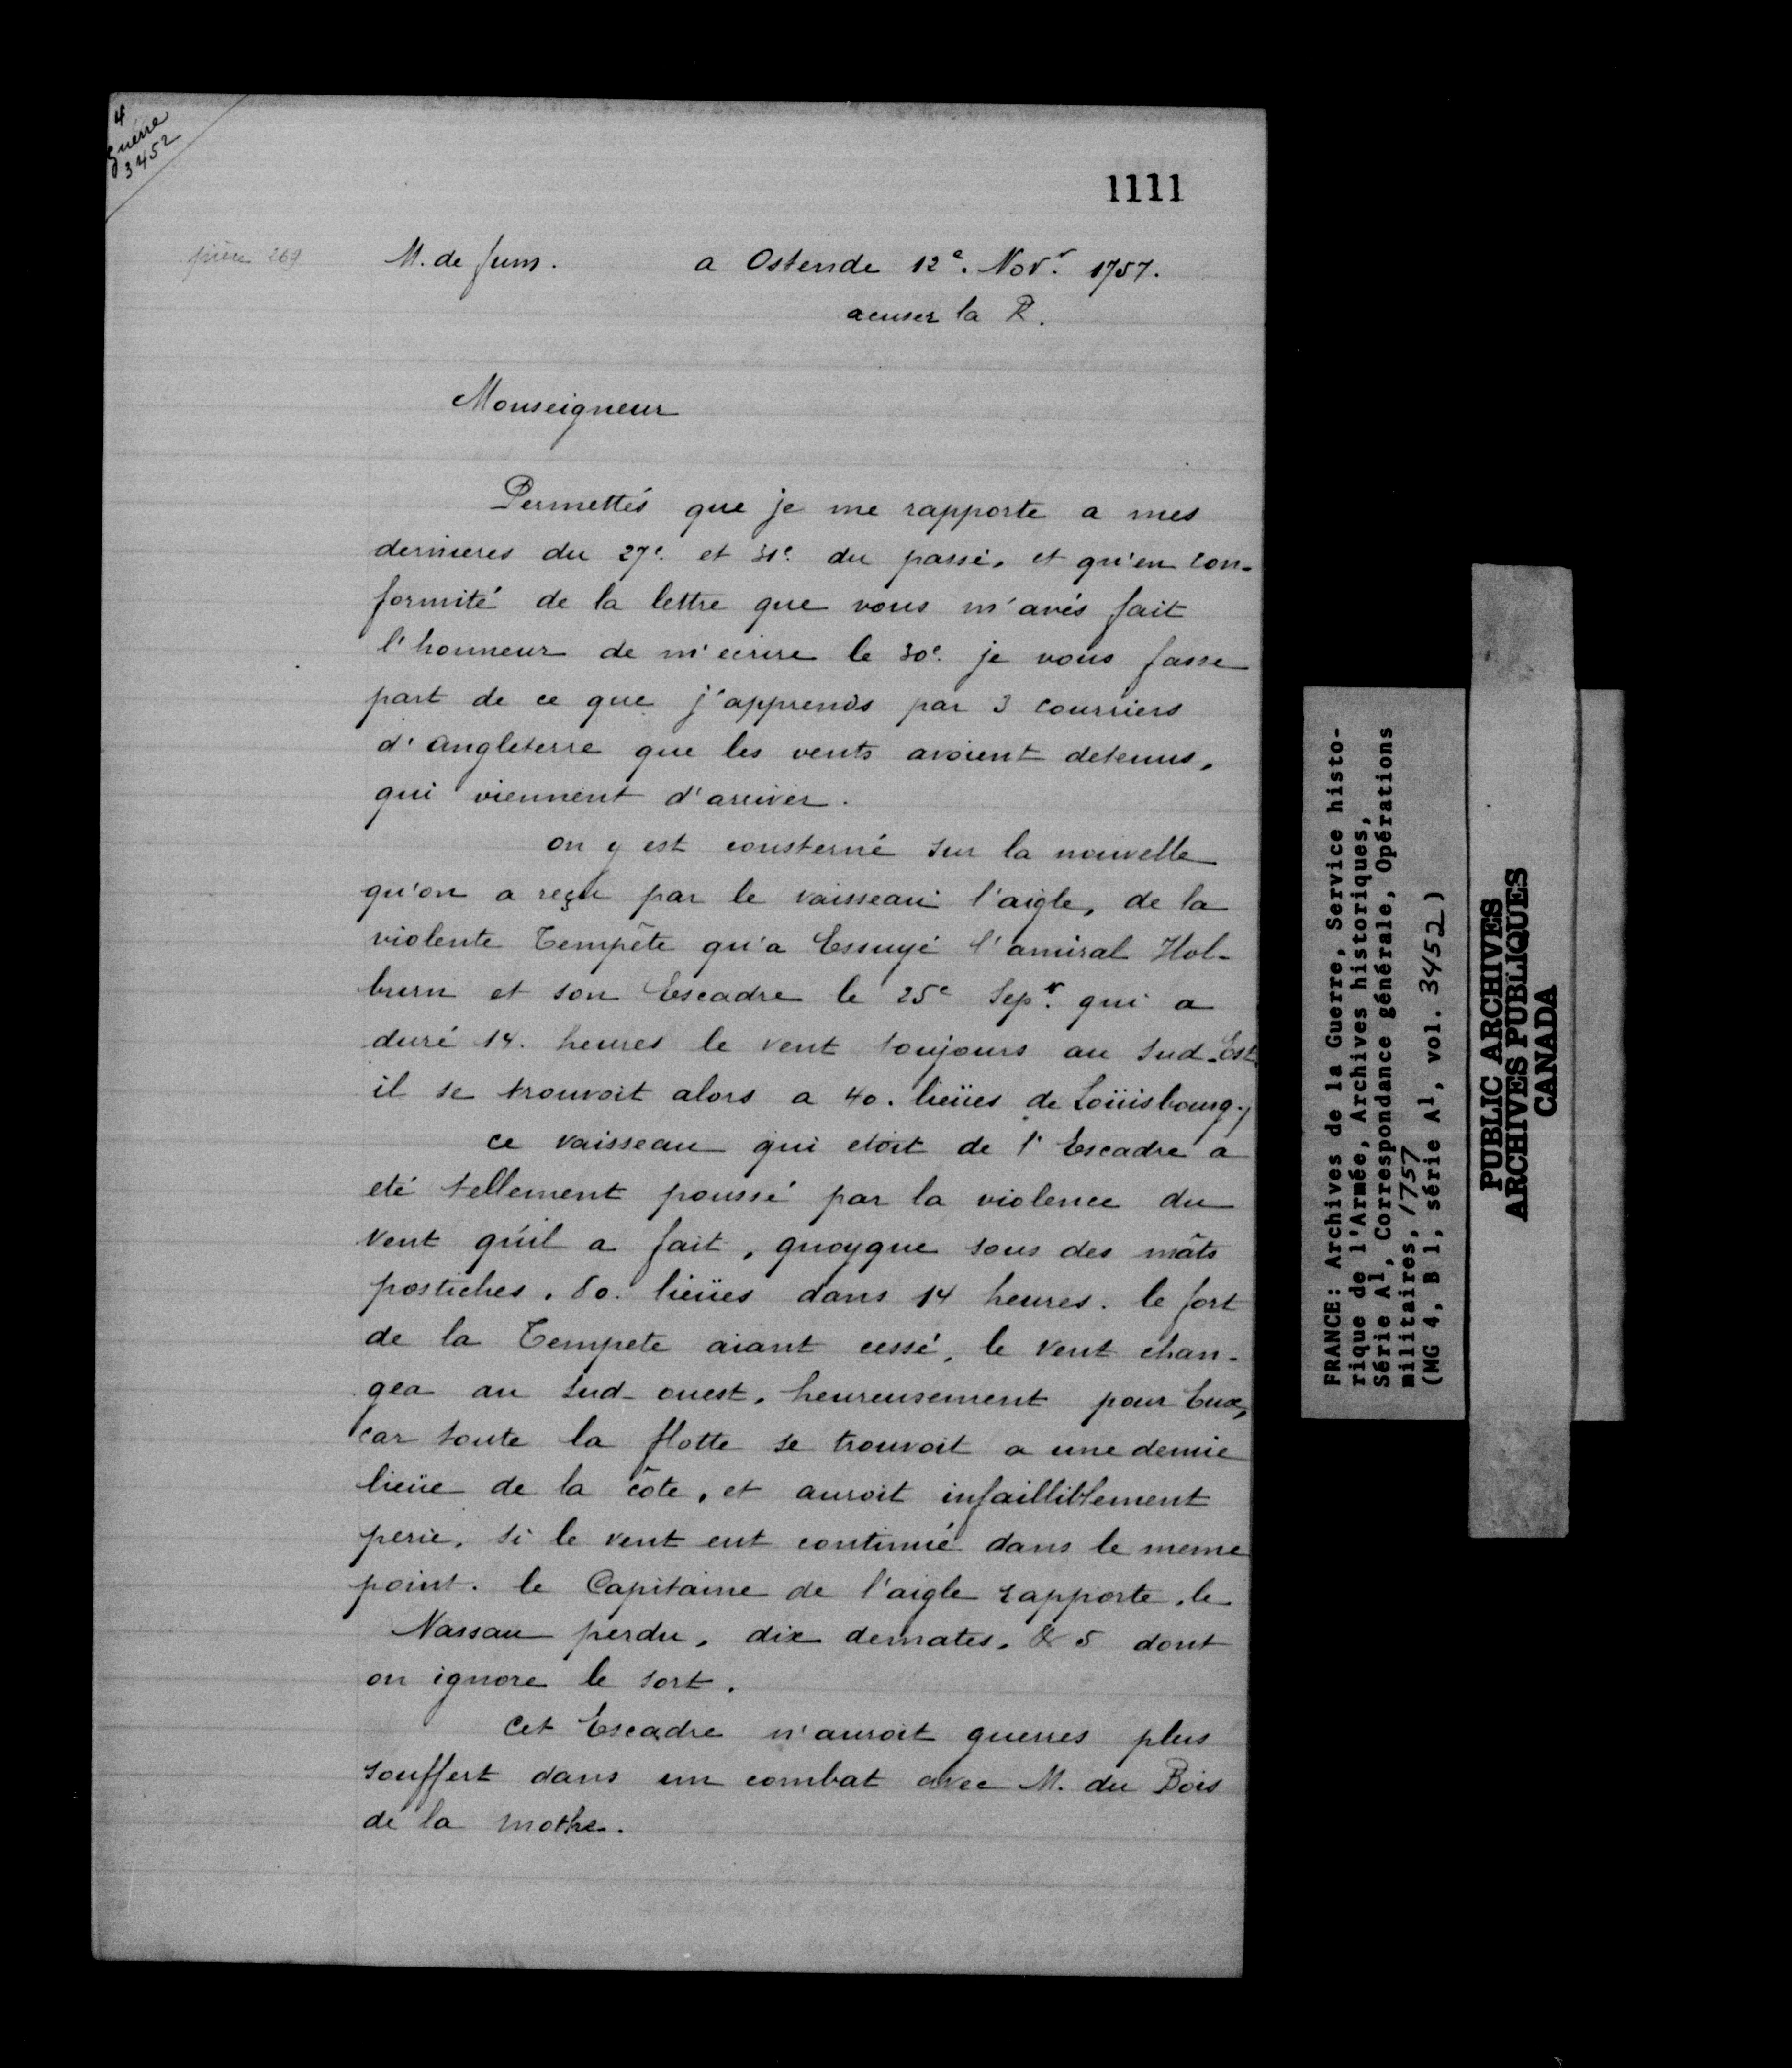 4
Guerre
3452
1111
pièce 269
M. de Jum. a Ostende 12e. Novr. 1757.
acuser la R.
Monseigneur
Permettés que je me rapporte a mes
dernieres du 27e. et 31e. du passé, et qu'en con-
formité de la lettre que vous m'avés fait
l'honneur de m'ecrire le 30e. je vous fasse
part de ce que j'apprends par 3 courriers
d'angleterre que les vents avoient detenus,
qui viennent d'arriver.
on y est consterné sur la nouvelle
qu'on a reçu par le vaisseau l'aigle, de la
violente Tempête qu'a Essuyé l'amiral Hol-
burn et son Escadre le 25e Sepr. qui a
duré 14. heures le vent toujours au Sud-Est
il se trouvoit alors a 40. lieües de Loüisbourg.
ce vaisseau qui etoit de l'Escadre a
eté tellement poussé par la violence du
vent qu'il a fait, quoyque sous des mâts
postiches, 80. lieües dans 14 heures. le fort
de la Tempete aiant cessé, le vent chan-
gea au Sud-ouest, heureusement pour Eux,
car toute la flotte se trouvoit a une demie
lieüe de la côte, et auroit infailliblement
perie, si le vent eut continué dans le meme
point. le Capitaine de l'aigle rapporte, le
Nassau perdu, dix demates, & 5 dont
on ignore le sort.
Cet Escadre n'auroit guerres plus
souffert dans un combat avec M. du Bois
de la mothe.
FRANCE: Archives de la Guerre, Service histo-
rique de l'Armée, Archives historiques,
Série A1, Correspondance générale, Opérations
militaires, 1757
(MG 4, B 1, série A1, vol. 3452)
PUBLIC ARCHIVES
ARCHIVES PUBLIQUES
CANADA